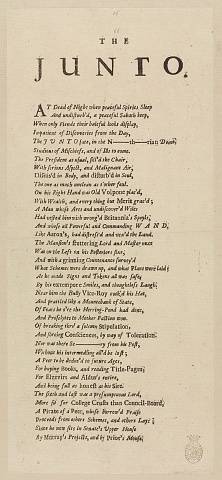 THE
JUNTO.
AT Dead of Night when peaceful Spirits Sleep
And undisturb'd, a peaceful Sabath keep,
When only Fiends their baleful looks display,
Impatient of Discoveries from the Day,
The JUNTO sate, in the N—th—rian Dome,
Studious of Mischiefs, and of Ills to come.
The President as usual, fill'd the Chair,
With furious Aspect, and Malignant Air,
Diseas'd in Body, and disturb'd in Soul,
The one as much unclean as t'other foul.
On his Right Hand was Old Volpone plac'd,
With Wealth, and every thing but Merit grac'd;
A Man whose Arts and undiscover'd Wiles
Had oblig'd him with wrong'd Britannia's Spoyls,
And whose all Powerful and Commanding WAND,
Like Aaron's, had distress'd and rul'd the Land.
The Mansion's fluttering Lord and Master next
Was on the Left in his Posteriors fixt,
And with a grinning Countenance survey'd
What Schemes were drawn up, and what Plots were laid;
As he made Signs and Tokens all was safe,
By his extempore Smiles, and thoughtless Laugh.
Near him the Bully Vice-Roy cock'd his Hat,
And prattled like a Mountebank of State,
Of Peace he o're the Herring-Pond had done,
And Presbyters to Mother Faction won
Of breaking thro' a solemn Stipulation,
And forcing Consciences, by way of Toleration.
Nor was there Se———ry from his Post,
Without his intermedling all'd be lost;
A Peer to be dedic'd to future Ages,
For buying Books, and reading Title-Pages;
For Elzevirs and Aldus's entire,
And being full as honest as his Sire.
The sixth and last was a presumptuous Lord,
More fit for College Crusts than Council-Board,
A Pirate of a Poet, whose Borrow'd Praise
Proceeds from others Schemes, and others Lays;
Since he now sits in Senate's Upper House
By Murray's Projects, and by Prior's Mouse.